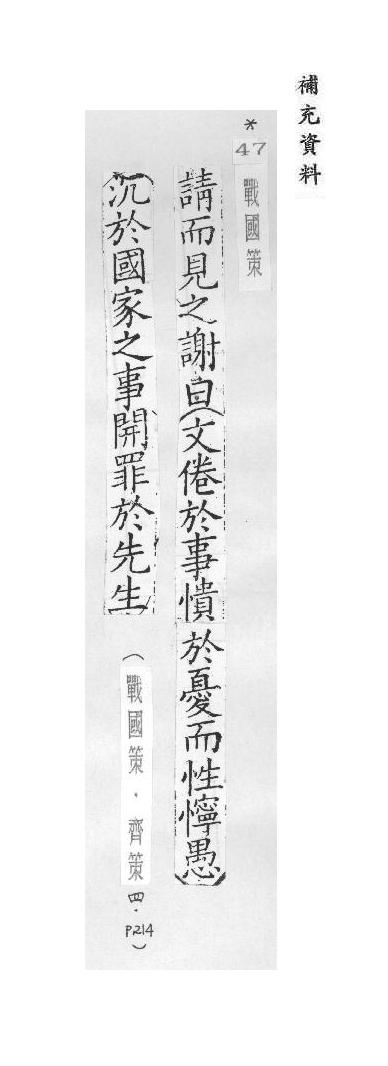 補充資料
*47 戰國策
請而見之謝曰(文倦於事憒於憂而性懧愚)
(沉於國家之事開罪於先生)(戰國策．齊策四．P.214)